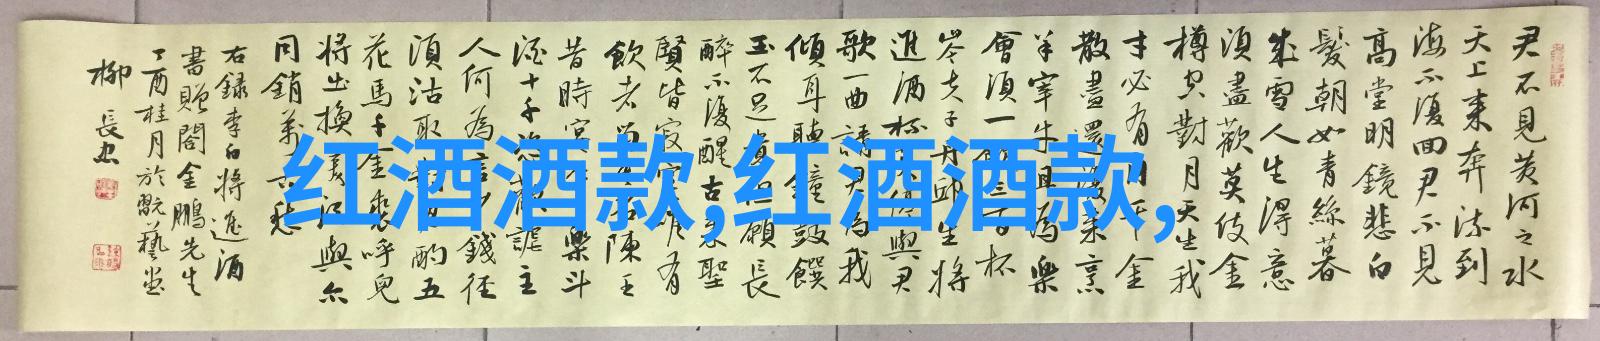 君不見黃河之水
天上來奔流到
海不復回君不見
高堂明鏡悲白
髮朝如青絲暮
成雪人生得意
須盡歡莫使金
樽空對月天生我
才必有用千金
散盡還復來烹
羊宰牛且為樂
會須一飲三百杯
岑夫子丹邱生將
進酒杯莫停與君
歌一曲請君為我
傾耳聽鐘鼓饌
玉不足貴但願長
醉不復醒古來聖
賢皆寂寞唯有
飲者留其名陳王
昔時宴平樂斗
酒十千恣歡謔主
人何為言少錢徑
須沽取對君酌五
花馬千金裘呼兒
將出換美酒與尒
同銷萬古愁
右録李白將進酒
書贈閻金鵬先生
丁酉桂月於翫藝堂
柳長忠
红酒酒款,红酒酒款,